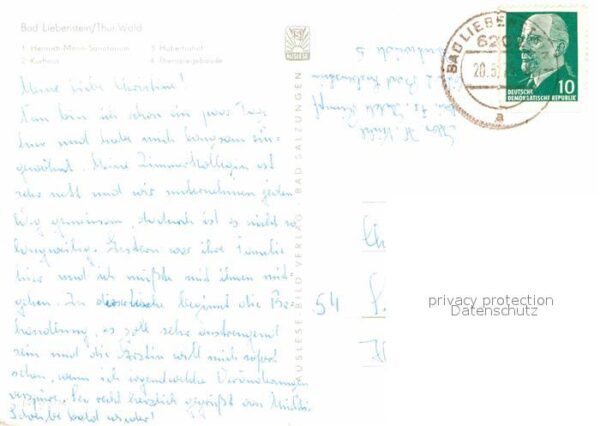 Bad Liebenstein/Thür. Wald
1 Heinrich Mann Sanatorium 3 Hubertushof
2 Kurhaus 4 Therapiegebäude
Meine liebe Christine!
Nun bin ich schon ein paar Tage
hier und habe mich langsam ein-
gewöhnt. Meine Zimmerkollegin ist
sehr nett und wir unternehmen jeden
Weg gemeinsam, dadurch ist es nicht so
langweilig. Gestern war ihre Familie
hier und ich mußte mit ihnen mit-
gehen. In dieser Woche beginnt die Be-
handlung, es soll sehr anstrengend
sein und die Ärztin will mich sofort
sehen, wenn ich irgendwelche Veränderungen
verspüre. Sei recht herzlich gegrüßt von
Schreibe bald wieder!
AUSLESE-BILD-VERLAG · BAD SALZUNGEN
AUSLESE
54
BAD LIEBEN
6202
20.5.
a
10
DEUTSCHE
DEMOKRATISCHE REPUBLIK
privacy protection
Datenschutz